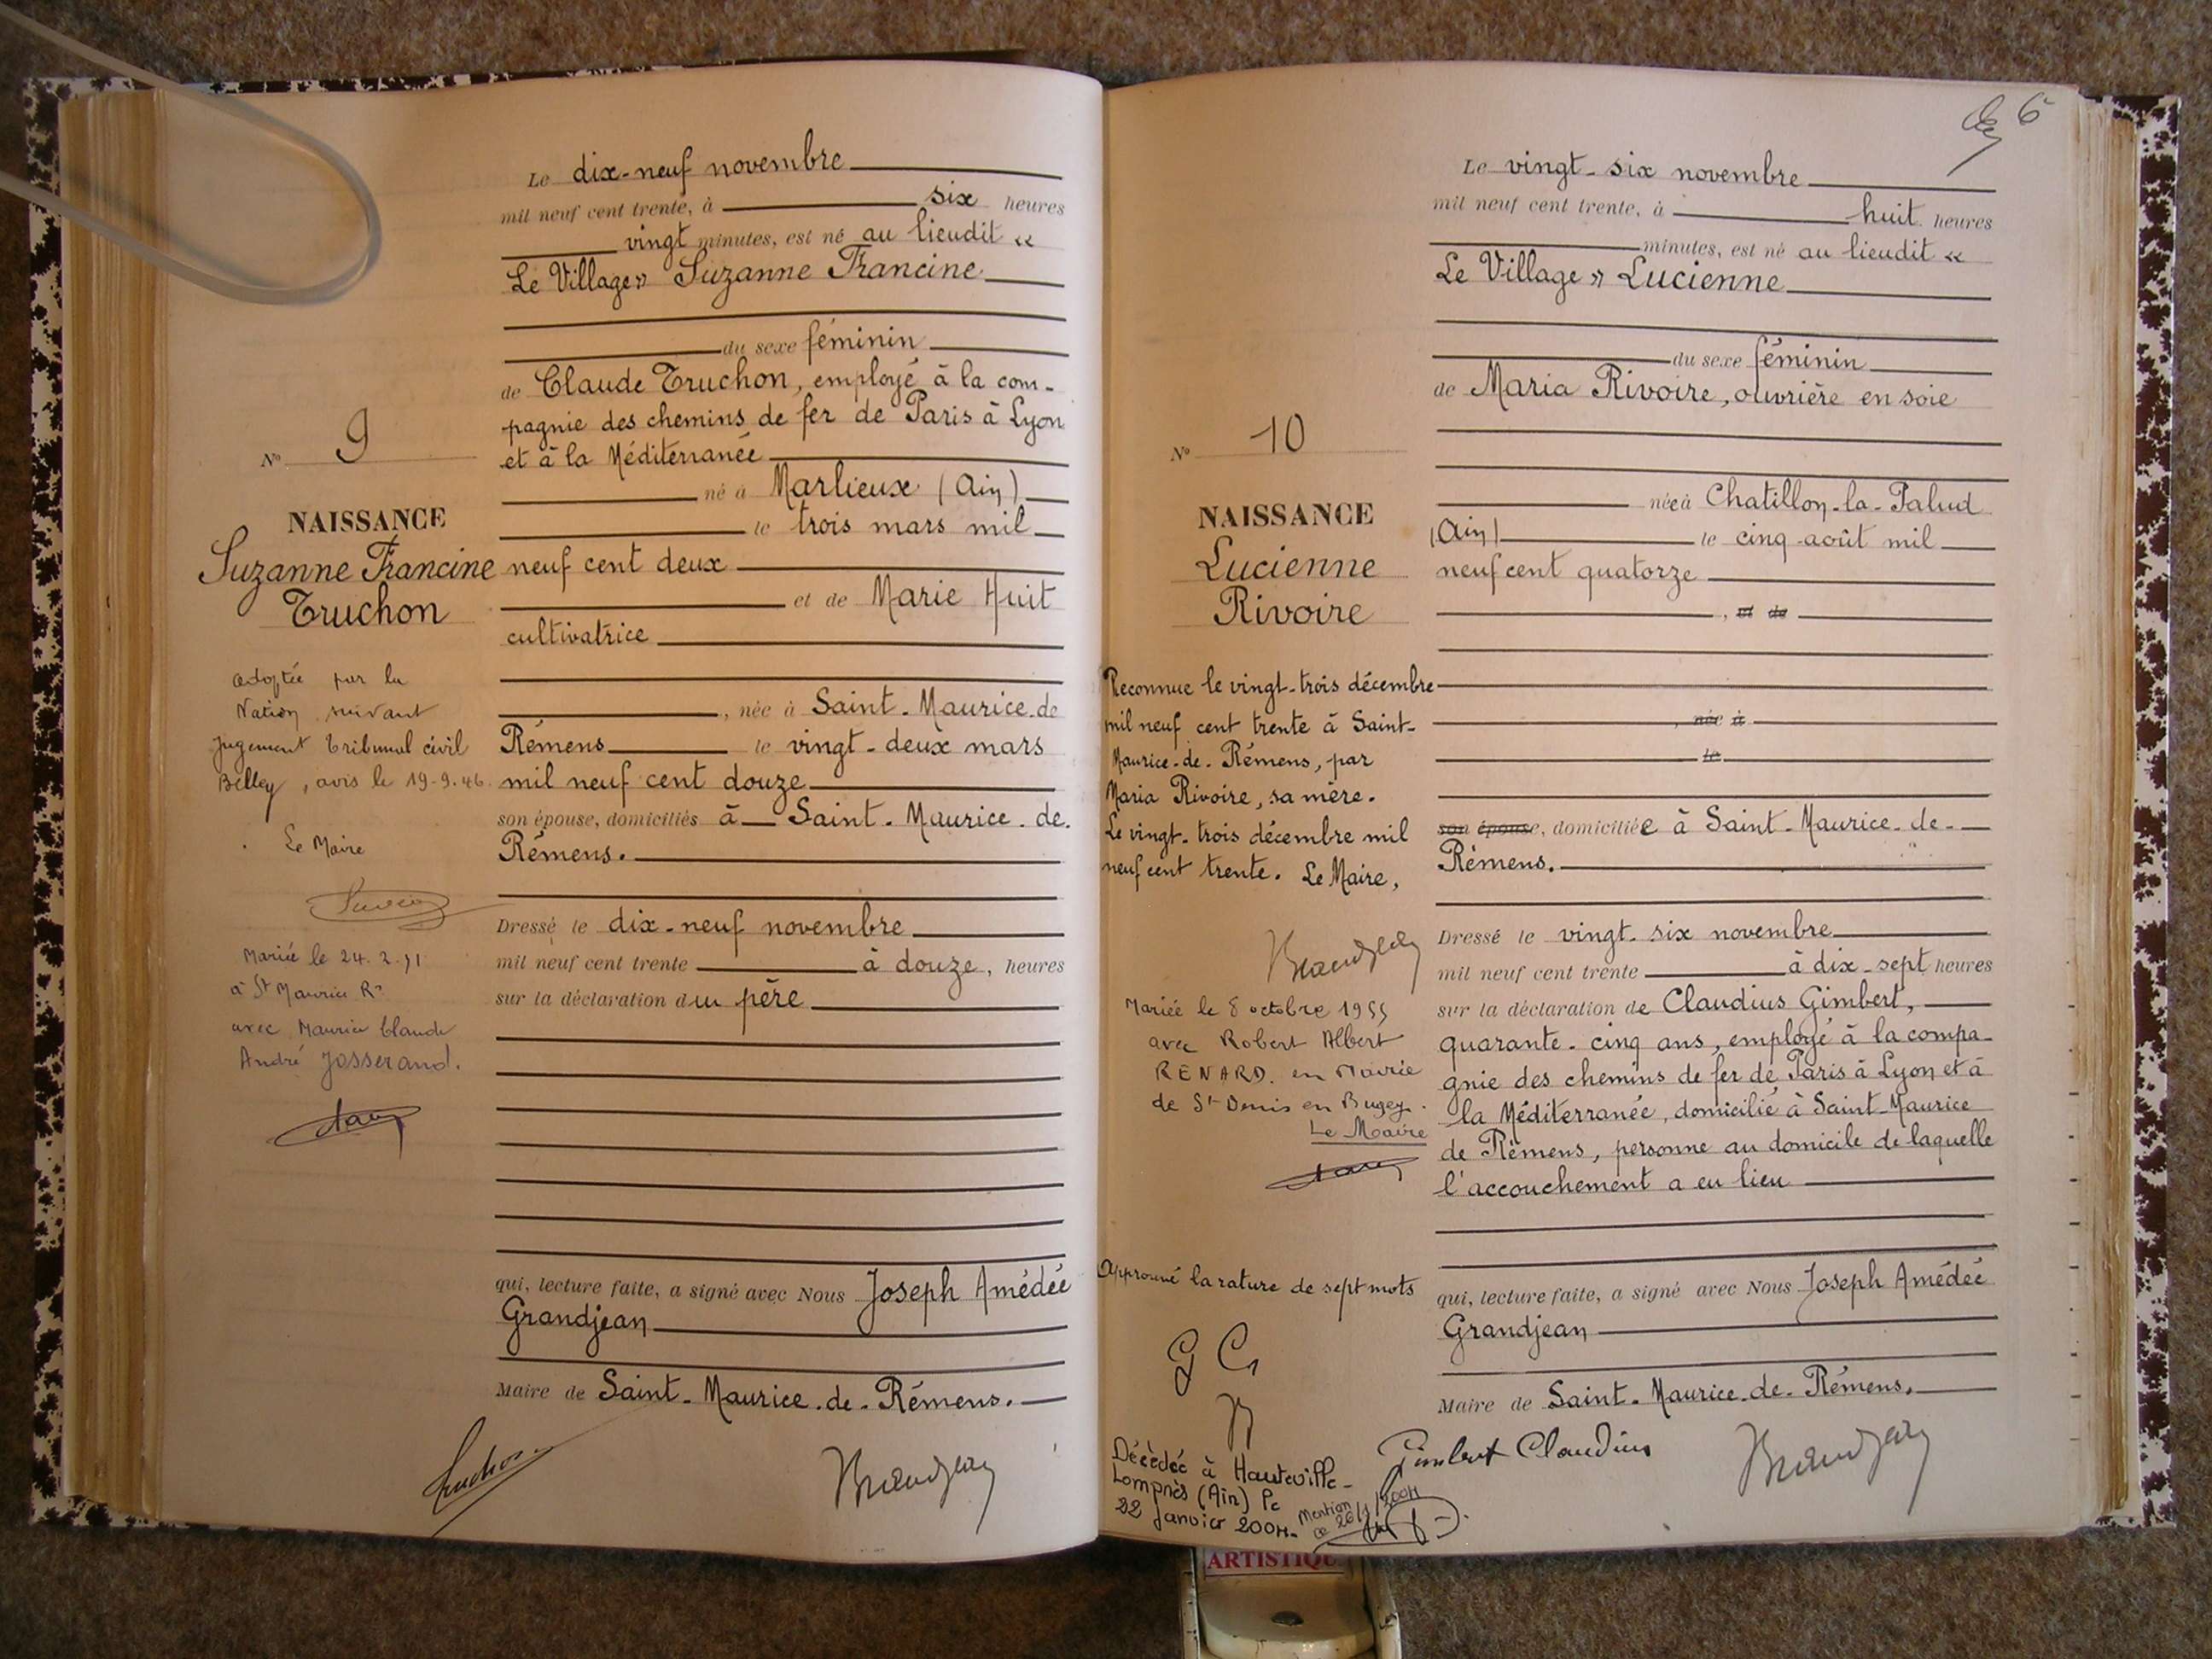 Le dix-neuf novembre
mil neuf cent trente, à six heures
vingt minutes, est né au lieudit «
Le Village » Suzanne Francine
du sexe féminin
de Claude Truchon, employé à la com-
pagnie des chemins de fer de Paris à Lyon
et à la Méditerranée
né à Marlieux (Ain)
le trois mars mil
neuf cent deux
et de Marie Huit
cultivatrice
, née à Saint-Maurice-de
Rémens le vingt-deux mars
mil neuf cent douze
son épouse, domiciliés à Saint-Maurice-de.
Rémens.
Dressé le dix-neuf novembre
mil neuf cent trente à douze, heures
sur la déclaration du père
qui, lecture faite, a signé avec Nous Joseph Amédée
Grandjean
Maire de Saint-Maurice-de-Rémens.
N° 9
NAISSANCE
Suzanne Francine
Truchon
adoptée par la
Nation suivant
jugement Tribunal civil
Belley, avis le 19-9.46
Le Maire
Mariée le 24.2.
à St Maurice R
avec Maurice Claude
André Josserand.
6
Le vingt-six novembre
mil neuf cent trente, à huit heures
minutes, est né au lieudit «
Le Village » Lucienne
du sexe féminin
de Maria Rivoire, ouvrière en soie
née à Chatillon-la-Palud
(Ain) le cinq août mil
neuf cent quatorze
, et de
, née à
le
son épouse, domiciliée à Saint-Maurice-de-
Rémens.
Dressé le vingt-six novembre
mil neuf cent trente à dix-sept heures
sur la déclaration de Claudius Gimbert,
quarante-cinq ans, employé à la compa-
gnie des chemins de fer de Paris à Lyon et à
la Méditerranée, domicilié à Saint-Maurice
de Rémens, personne au domicile de laquelle
l'accouchement a eu lieu
qui, lecture faite, a signé avec Nous Joseph Amédée
Grandjean
Maire de Saint-Maurice-de-Rémens.
Gimbert Claudius
N° 10
NAISSANCE
Lucienne
Rivoire
Reconnue le vingt-trois décembre
mil neuf cent trente à Saint-
Maurice-de-Rémens, par
Maria Rivoire, sa mère.
Le vingt-trois décembre mil
neuf cent trente. Le Maire,
Mariée le 8 octobre 1955
avec Robert Albert
RENARD. en Mairie
de St Denis en Bugey.
Le Maire
Approuvé la rature de sept mots
G C
Décédée à Hauteville-
Lompnès (Ain) le
22 Janvier 2004.
Mention
ce 26/1/2004
ARTISTIQUE